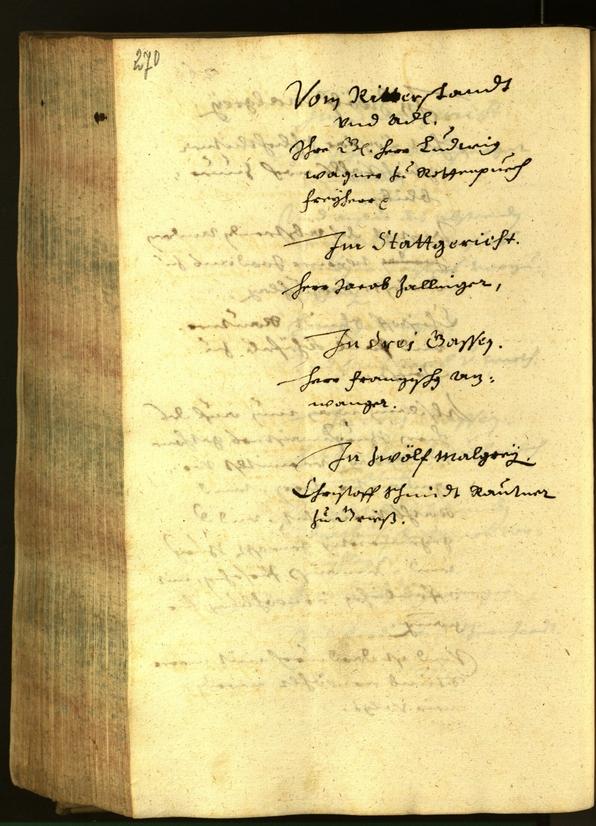 270
Vom Ritterstandt
vnd Adl,
Ihre Gl. Herr Ludwig
Wagner zu Rottenpuech
Freyherr
Im Stattgericht.
Herr Jacob Zallinger,
In drei Gassen.
Herr Franzisch An:
wanger.
In Zwölf Malgrey.
Christoff Schmidt Rautner
zu Grieß.